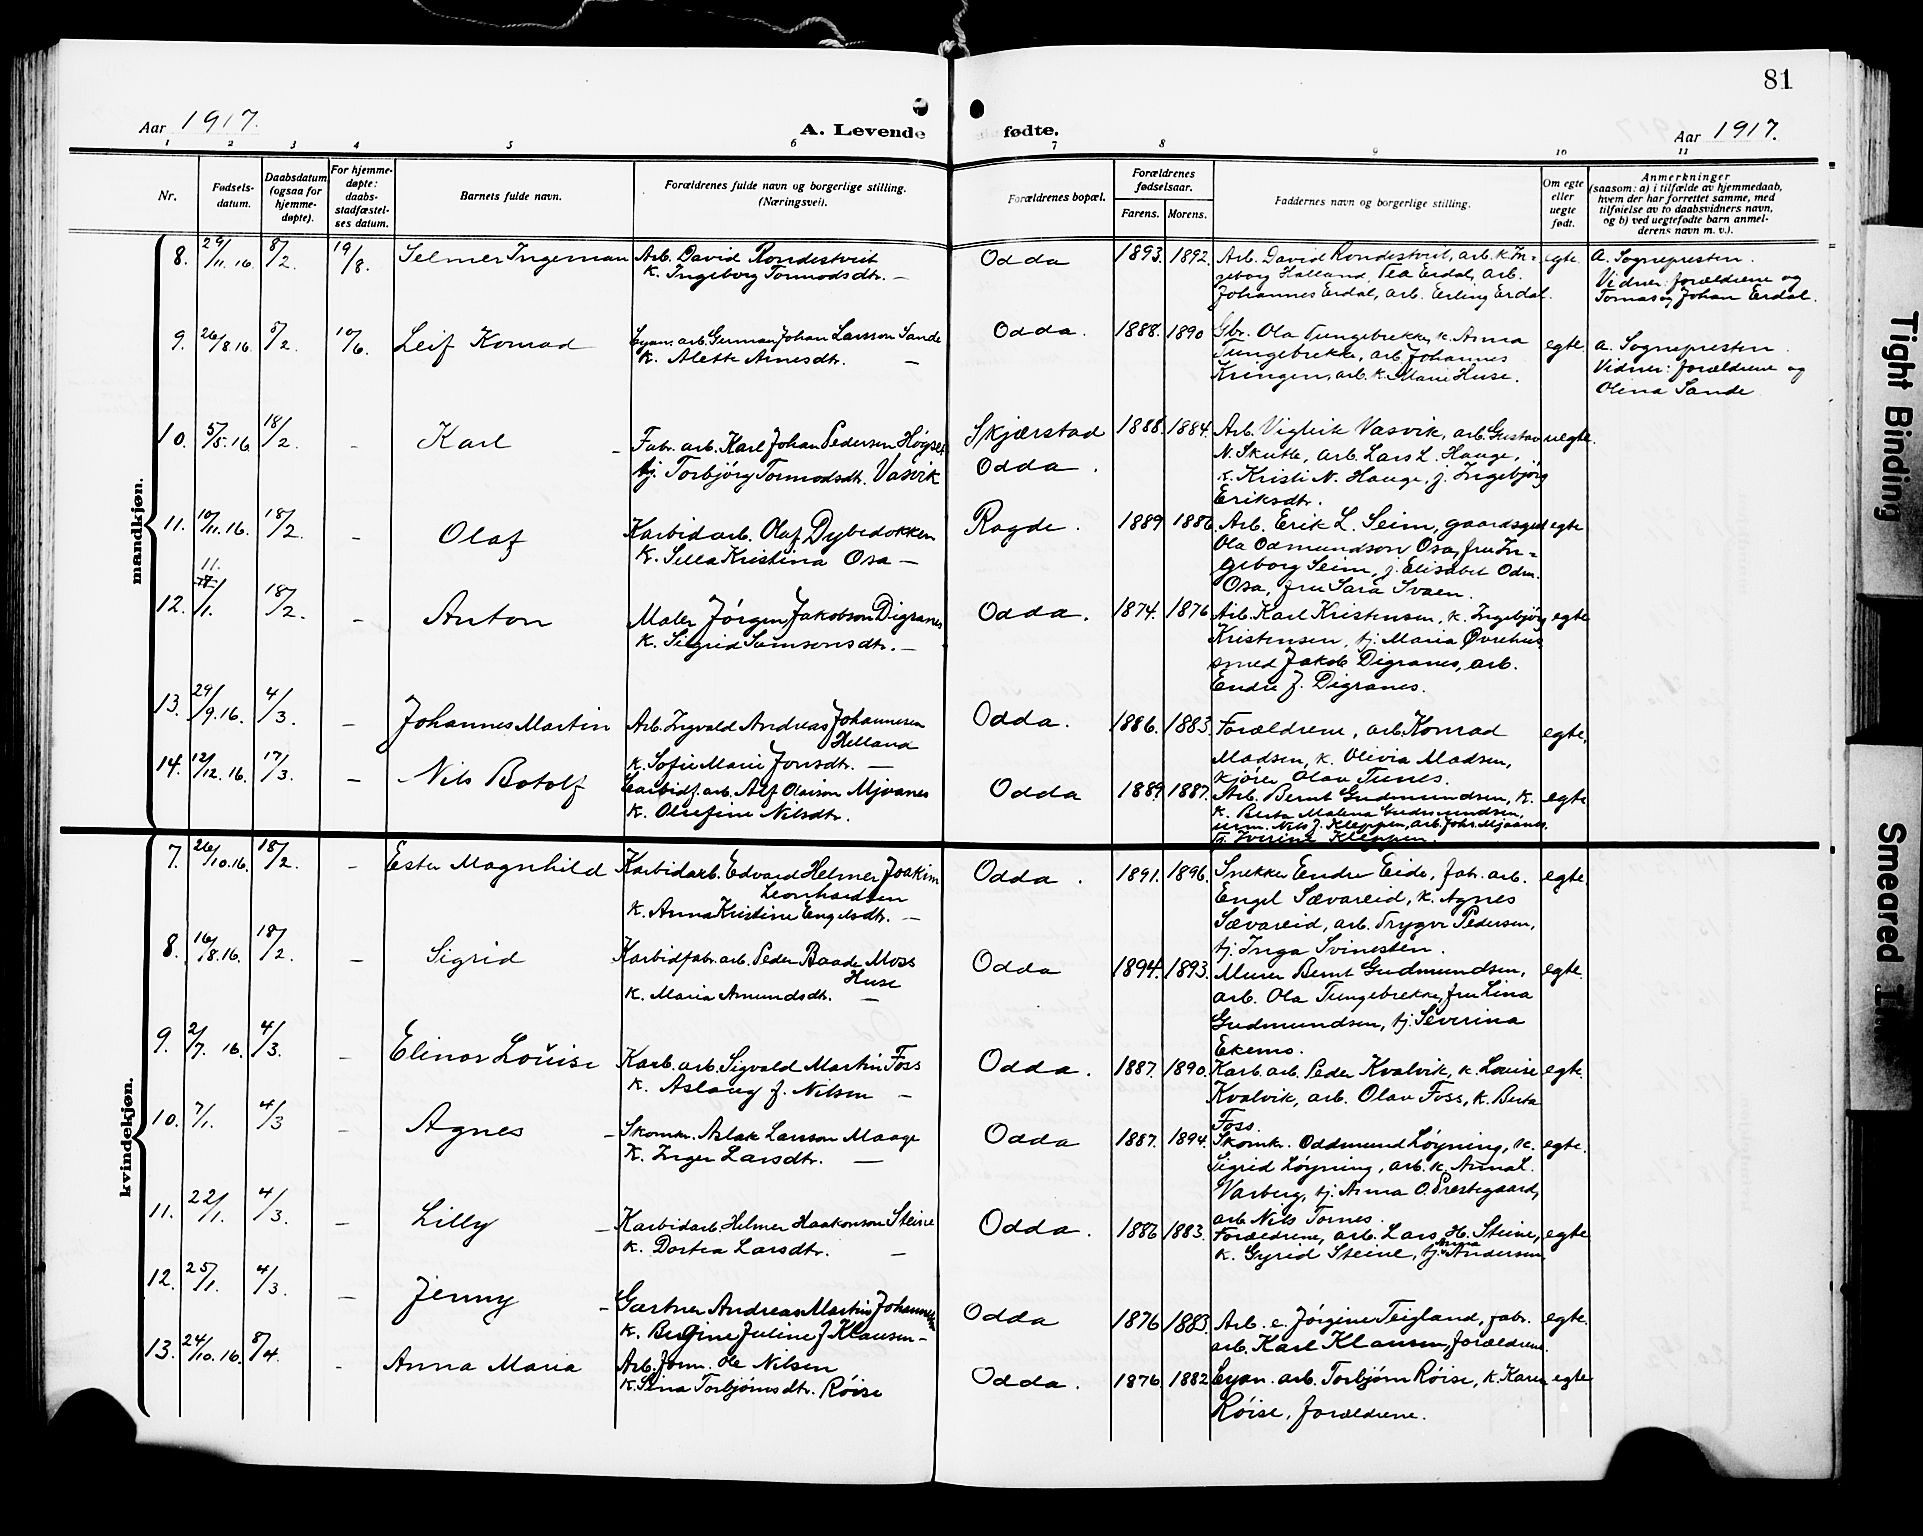 81
Aar 1917.
A. Levende fødte.
Aar 1917.
1 2 3 4 5 6 7 8 9 10 11
Nr.
Fødsels-
datum.
Daabsdatum
(ogsaa for
hjemme-
døpte).
For hjemme-
døpte:
daabs-
stadfæstel-
ses datum.
Barnets fulde navn.
Forældrenes fulde navn og borgerlige stilling.
(Næringsvei).
Forældrenes bopæl.
Forældrenes
fødselsaar.
Farens. Morens.
Faddernes navn og borgerlige stilling.
Om egte
eller
uegte
født.
Anmerkninger
(saasom: a) i tilfælde av hjemmedaab,
hvem der har forrettet samme, med
tilføielse av to daabsvidners navn,
og b) ved uegtefødte barn anmel-
derens navn m. v.).
mandkjøn.
8. 29/11.16. 8/2. 19/8. Selmer Ingeman
Arb. David Rondestveit
k. Ingeborg Tormodsdtr. —
Odda 1893. 1892.
Arb. David Rondestveit, arb. k. In-
geborg Halland, Tea Erdal, arb.
Johannes Erdal, arb. Erling Erdal.
egte.
a. Sognepresten.
Vidner: forældrene og
Tomas og Johan Erdal.
9. 26/8.16. 8/2. 10/6. Leif Konrad
Cyan. arb. German Johan Larsson Sande
k. Alette Arnesdtr. —
Odda. 1888. 1890
Gbr. Ola Tungebrekke, k. Anna
Tungebrekke, arb. Johannes
Kringen, arb. k. Marie Huse.
egte.
a. Sognepresten.
Vidner: forældrene og
Olina Sande
10. 5/5.16. 18/2 - Karl -
Fabr. arb. Karl Johan Pedersen Høgset
tj. Torbjörg Tormodsdtr. Vasvik
Skjærstad
Odda.
1888. 1884.
Arb. Viglik Vasvik, arb. Gustav
N. Skutle, arb. Lars L. Hauge,
k. Kristi N. Hauge, j. Ingebjörg
Eriksdtr.
uegte.
11. 10/11.16. 18/2. - Olaf
Karbidarb. Olaf Dybedokken
k. Silla Kristina Osa —
Ragde. 1889 1886
Arb. Erik L. Seim, gaardsgut
Ola Odmundson Osa, fru In-
geborg Seim, j. Elisabet Odm.
Osa, fru Sara Svaen.
egte
12. 11/1. 18/2 - Anton
Maler Jörgen Jakobson Digranes
k. Sigrid Samsonsdtr. —
Odda. 1874. 1876
Arb. Karl Kristensen, k. Ingebjörg
Kristensen, tj. Maria Øvrehus,
smed Jakob Digranes, arb.
Endre J. Digranes.
egte
13. 29/9.16. 4/3. - Johannes Martin
Arb. Ingvald Andreas Johannesen
Helland
k. Sofie Marie Jonsdtr. —
Odda. 1886. 1883.
Forældrene, arb. Konrad
Madsen, k. Olivia Madsen,
kjörer Olav Tunes.
egte.
14. 12/12.16. 17/3. - Nils Botolf
Carbidf. arb. Alf Olaison Mjoanes
k. Olufine Nilsdtr.
Odda 1889. 1887.
Arb. Bernt Gudmundsen, k.
k. Berta Malena Gudmundsen,
urm. Nils J. Kleppen, arb. Johs. Mjoanes,
tj. Iverine Kleppen.
egte
kvindekjøn.
7. 26/10.16. 18/2. - Ester Magnhild
Karbidarb. Edvard Helmer Joakim
Leonhardsen
k. Anna Kristine Engelsdtr. —
Odda. 1891. 1896.
Snekker Endre Eide, fab. arb.
Engel Sævareid, k. Agnes
Sævareid, arb. Trygve Pedersen,
tj. Inga Svinesten.
egte.
8. 16/8.16. 18/2. - Sigrid
Karbidfabr. arb. Peder Baade Moss
Huse
k. Maria Amundsdtr. —
Odda 1894. 1893.
Murer Bernt Gudmundsen,
arb. Ola Tungebrekke, fru Lina
Gudmundsen, tj. Severina
Ekerns.
egte.
9. 2/7. 16. 4/3. - Elinor Louise
Karb. arb. Sigvald Martin Foss
k. Aslaug f. Nilsen —
Odda. 1887. 1890.
Karb. arb. Peder Kvalvik, k. Louise
Kvalvik, arb. Olav Foss, k. Berta
Foss.
egte.
10. 7/1. 4/3 - Agnes -
Skomkr. Aslak Larsson Maage
k. Inger Larsdtr. —
Odda 1887. 1894.
Skomkr. Oddmund Löyning, k.
Sigrid Löyning, arb. k. Anna L.
Varberg, tj. Anna O. Prestegaard,
arb. Nils Tornes.
egte.
11. 22/1. 4/3. - Lilly -
Karbidarb. Helmer Haakonson Steine
k. Dortea Larsdtr. —
Odda. 1886 1883.
Forældrene, arb. Lars H. Steine,
k. Gyrid Steine, tj. Anna Andersen.
egte
12. 25/1. 4/3. - Jenny -
Gartner Andreas Martin Johannesen
k. Bergine Juline f. Klausen —
Odda 1876 1883.
Arb. e. Jörgine Teigland, fabr.
arb. Karl Klausen, forældrene.
egte.
13. 24/10.16. 8/4. - Anna Maria
Arb. form. Ole Nilsen
k. Sina Torbjörnsdtr. Röise
Odda. 1876. 1882
Cyan. arb. Torbjörn Röise, k. Karen
Röise, forældrene.
egte
Tight Binding
Smeared